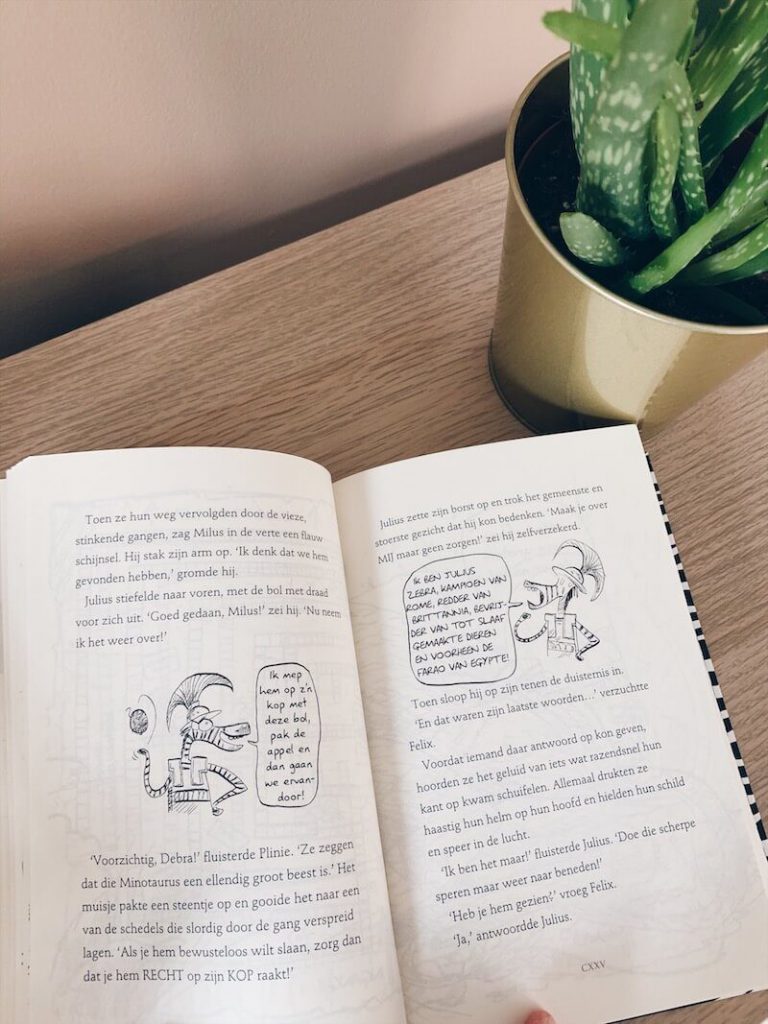 Toen ze hun weg vervolgden door de vieze,
stinkende gangen, zag Milus in de verte een flauw
schijnsel. Hij stak zijn arm op. ‘Ik denk dat we hem
gevonden hebben,’ gromde hij.
Julius stiefelde naar voren, met de bol met draad
voor zich uit. ‘Goed gedaan, Milus!’ zei hij. ‘Nu neem
ik het weer over!’
Ik mep
hem op z'n
kop met
deze bol,
pak de
appel en
dan gaan
we ervan-
door!
‘Voorzichtig, Debra!’ fluisterde Plinie. ‘Ze zeggen
dat die Minotaurus een ellendig groot beest is.’ Het
muisje pakte een steentje op en gooide het naar een
van de schedels die slordig door de gang verspreid
lagen. ‘Als je hem bewusteloos wilt slaan, zorg dan
dat je hem RECHT op zijn KOP raakt!’
Julius zette zijn borst op en trok het gemeenste en
stoerste gezicht dat hij kon bedenken. ‘Maak je over
MIJ maar geen zorgen!’ zei hij zelfverzekerd.
IK BEN JULIUS
ZEBRA, KAMPIOEN VAN
ROME, REDDER VAN
BRITTANNIA, BEVRIJ-
DER VAN TOT SLAAF
GEMAAKTE DIEREN
EN VOORHEEN DE
FARAO VAN EGYPTE!
Toen sloop hij op zijn tenen de duisternis in.
‘En dat waren zijn laatste woorden...’ verzuchtte
Felix.
Voordat iemand daar antwoord op kon geven,
hoorden ze het geluid van iets wat razendsnel hun
kant op kwam schuifelen. Allemaal drukten ze
haastig hun helm op hun hoofd en hielden hun schild
en speer in de lucht.
‘Ik ben het maar!’ fluisterde Julius. ‘Doe die scherpe
speren maar weer naar beneden!’
‘Heb je hem gezien?’ vroeg Felix.
‘Ja,’ antwoordde Julius.
CXXV